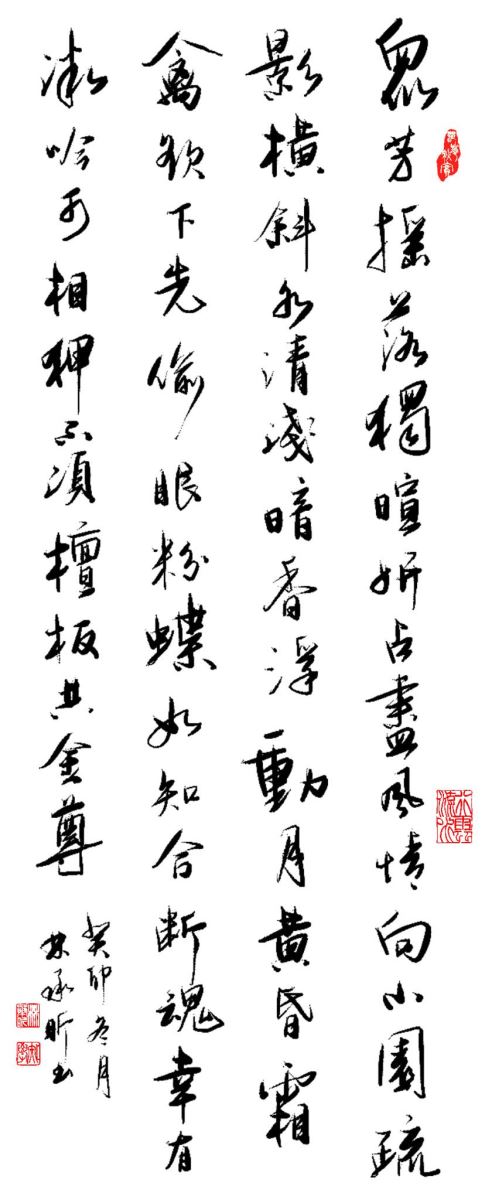 眾芳搖落獨暄妍占盡風情向小園疏
影橫斜水清淺暗香浮動月黃昏霜
禽欲下先偷眼粉蝶如知合斷魂幸有
微吟可相狎不須檀板共金尊
癸卯冬月
林承昕书